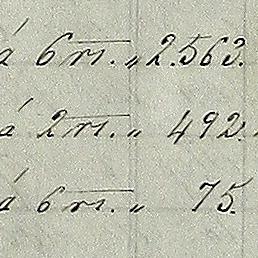 á 6 rs. „ 2.563.
á 2 rs. „ 492.
á 6 rs. „ 75.